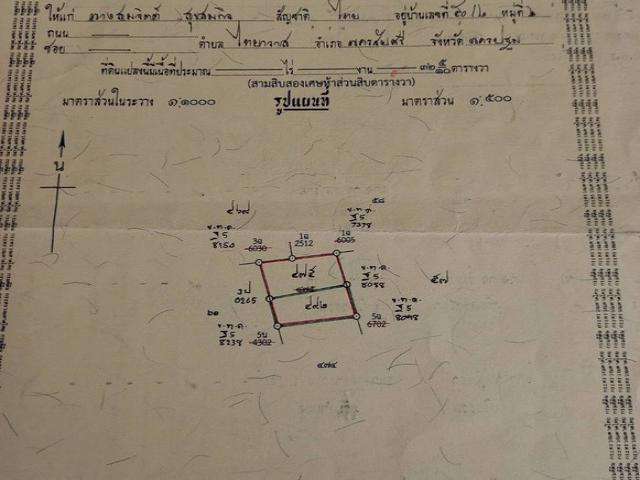 ให้แก่ นางสมจิตต์ สุขสมกิจ สัญชาติ ไทย อยู่บ้านเลขที่ ๕๐/๒ หมู่ที่ ๒
ถนน
ซอย ตำบล ไทยาวาส อำเภอ นครชัยศรี จังหวัด นครปฐม
ที่ดินแปลงนี้มีเนื้อที่ประมาณ ไร่ งาน ๓๒ ๕/๑๐ ตารางวา
(สามสิบสองเศษห้าส่วนสิบตารางวา)
มาตราส่วนในระวาง ๑:๑๐๐๐ รูปแผนที่ มาตราส่วน ๑:๕๐๐
น
ฐ 5
7378
ฐ 5
8150
3อ
6030
1อ
2512
1อ
6005
๔๗๕
ฐ 5
8088
๕๗
3ป
0265
๔๙๒
ฐ 5
8098
๖๑
ฐ 5
8238
5น
4302
5อ
6702